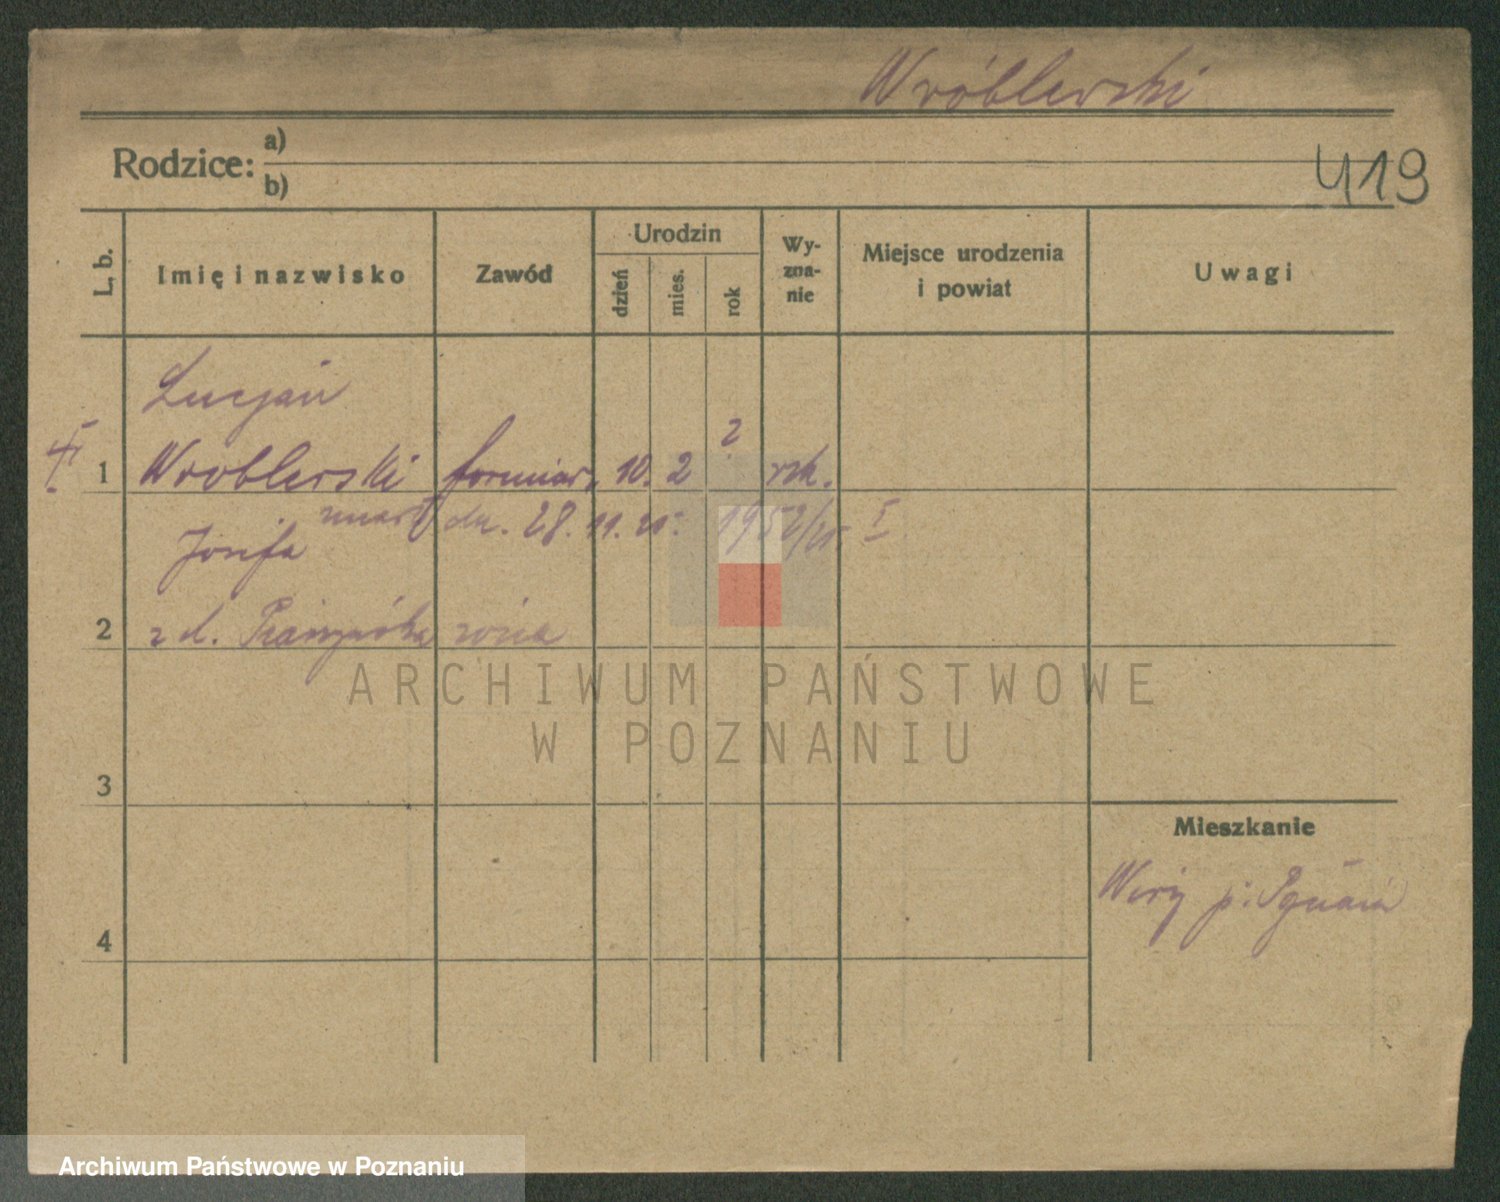 Wróblewski
Rodzice: a)
b)
419
L. b.
Imię i nazwisko
Zawód
Urodzin
dzień
mies.
rok
Wy-
zna-
nie
Miejsce urodzenia
i powiat
Uwagi
Lucjan
2
1 Wroblewski formiar. 10. 2 rzk.
zmarł dn. 28. 11. 25. 1952/25 I
Józefa
2 z d. żona
3
4
Mieszkanie
Wiry p.
ARCHIWUM PAŃSTWOWE
W POZNANIU
Archiwum Państwowe w Poznaniu